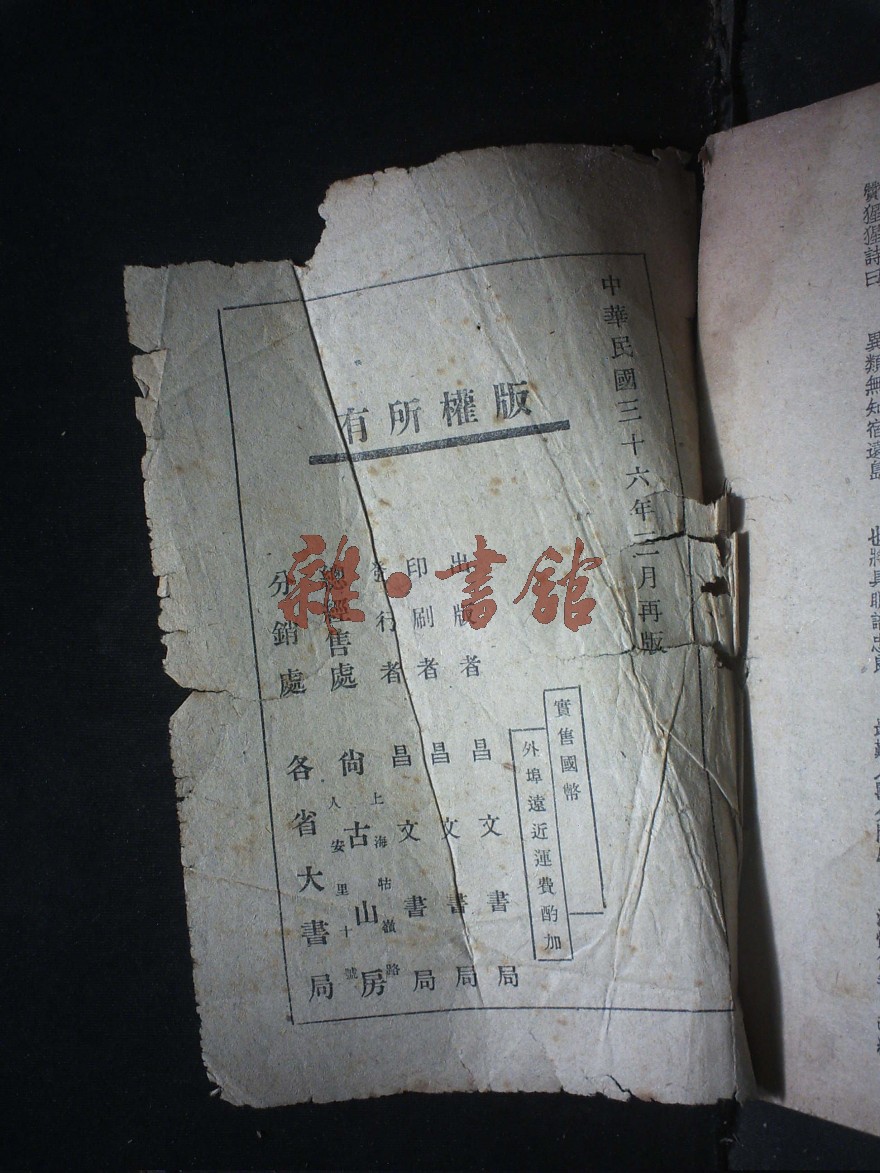 中華民國三十六年三月再版
版權所有
實售國幣
外埠遠近運費酌加
出版者 昌文書局
印刷者 昌文書局
發行者 昌文書局
總經售處 尙古山房
上海牯嶺路
人安里十號
分銷處 各省大書局
雜·書館
贊猩猩詩曰 異類無知宿遠島